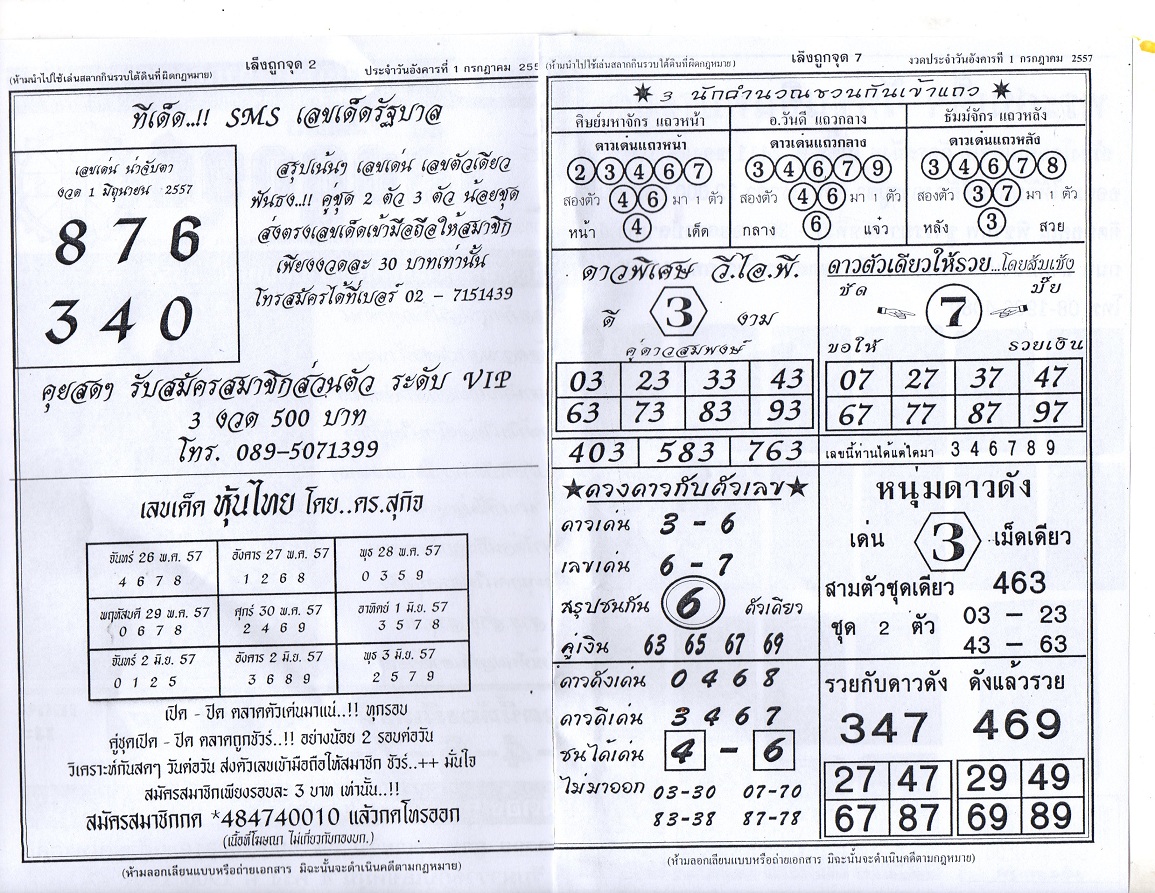 (ห้ามนำไปใช้เล่นสลากกินรวบใต้ดินที่ผิดกฎหมาย) เล็งถูกจุด 2 ประจำวันอังคารที่ 1 กรกฎาคม 255
ทีเด็ด..!! SMS เลขเด็ดรัฐบาล
เลขเด่น น่าจับตา
งวด 1 มิถุนายน 2557
8 7 6
3 4 0
สรุปเน้นๆ เลขเด่น เลขตัวเดียว
ฟันธง..!! คู่ชุด 2 ตัว 3 ตัว น้อยชุด
ส่งตรงเลขเด็ดเข้ามือถือให้สมาชิก
เพียงงวดละ 30 บาทเท่านั้น
โทรสมัครได้ที่เบอร์ 02 - 7151439
คุยสดๆ รับสมัครสมาชิกส่วนตัว ระดับ VIP
3 งวด 500 บาท
โทร. 089-5071399
เลขเด็ด หุ้นไทย โดย..ดร.สุกิจ
จันทร์ 26 พ.ค. 57 อังคาร 27 พ.ค. 57 พุธ 28 พ.ค. 57
4 6 7 8 1 2 6 8 0 3 5 9
พฤหัสบดี 29 พ.ค. 57 ศุกร์ 30 พ.ค. 57 อาทิตย์ 1 มิ.ย. 57
0 6 7 8 2 4 6 9 3 5 7 8
จันทร์ 2 มิ.ย. 57 อังคาร 2 มิ.ย. 57 พุธ 3 มิ.ย. 57
0 1 2 5 3 6 8 9 2 5 7 9
เปิด - ปิด ตลาดตัวเด่นมาแน่..!! ทุกรอบ
คู่ชุดเปิด - ปิด ตลาดถูกชัวร์..!! อย่างน้อย 2 รอบต่อวัน
วิเคราะห์กันสดๆ วันต่อวัน ส่งตัวเลขเข้ามือถือให้สมาชิก ชัวร์..++ มั่นใจ
สมัครสมาชิกเพียงรอบละ 3 บาท เท่านั้น..!!
สมัครสมาชิกกด *484740010 แล้วกดโทรออก
(เนื้อที่โฆษณา ไม่เกี่ยวกับกองบก.)
(ห้ามลอกเลียนแบบหรือถ่ายเอกสาร มิฉะนั้นจะดำเนินคดีตามกฎหมาย)
(ห้ามนำไปใช้เล่นสลากกินรวบใต้ดินที่ผิดกฎหมาย) เล็งถูกจุด 7 งวดประจำวันอังคารที่ 1 กรกฎาคม 2557
3 นักคำนวณชวนกันเข้าแถว
ศิษย์มหาจักร แถวหน้า อ.วันดี แถวกลาง ธัมม์จักร แถวหลัง
ดาวเด่นแถวหน้า ดาวเด่นแถวกลาง ดาวเด่นแถวหลัง
2 3 4 6 7 3 4 6 7 9 3 4 6 7 8
สองตัว 4 6 มา 1 ตัว สองตัว 4 6 มา 1 ตัว สองตัว 3 7 มา 1 ตัว
หน้า 4 เด็ด กลาง 6 แจ๋ว หลัง 3 สวย
ดาวพิเศษ วี.ไอ.พี.
ดี 3 งาม
คู่ดาวสมพงษ์
03 23 33 43
63 73 83 93
403 583 763
ดาวตัวเดียวให้รวย...โดยสับเซ้ง
ชัด 7 ชั๊ย
ขอให้ รวยเงิน
07 27 37 47
67 77 87 97
เลขนี้ท่านได้แต่ใดมา 3 4 6 7 8 9
★ดวงดาวกับตัวเลข★
ดาวเด่น 3 - 6
เลขเด่น 6 - 7
สรุปชนกัน 6 ตัวเดียว
คู่เงิน 63 65 67 69
ดาวดังเด่น 0 4 6 8
ดาวดีเด่น 3 4 6 7
ชนได้เด่น 4 - 6
ไม่มาออก 03-30 07-70
83-38 87-78
หนุ่มดาวดัง
เด่น 3 เม็ดเดียว
สามตัวชุดเดียว 463
ชุด 2 ตัว 03 - 23
43 - 63
รวยกับดาวดัง ดังแล้วรวย
347 469
27 47 29 49
67 87 69 89
(ห้ามลอกเลียนแบบหรือถ่ายเอกสาร มิฉะนั้นจะดำเนินคดีตามกฎหมาย)